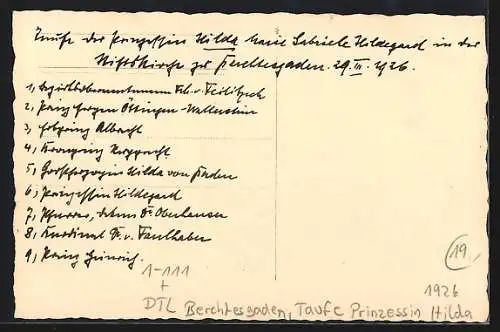 Taufe der Prinzessin Hilda Marie Gabriele Hildegard in der
Stiftskirche zu Berchtesgaden. 29. III. 1926.
1, Bezirksoberamtmann Frh. v. Feilitzsch
2, Prinz Eugen Öttingen-Wallerstein
3, Erbprinz Albrecht
4, Kronprinz Rupprecht.
5, Großherzogin Hilda von Baden
6, Prinzessin Hildegard
7, Pfarrer, Dekan Dr. Oberhauser
8, Kardinal Dr. v. Faulhaber
9, Prinz Heinrich.
19.
1-111
+
DTL Berchtesgaden, Taufe Prinzessin Hilda
1926